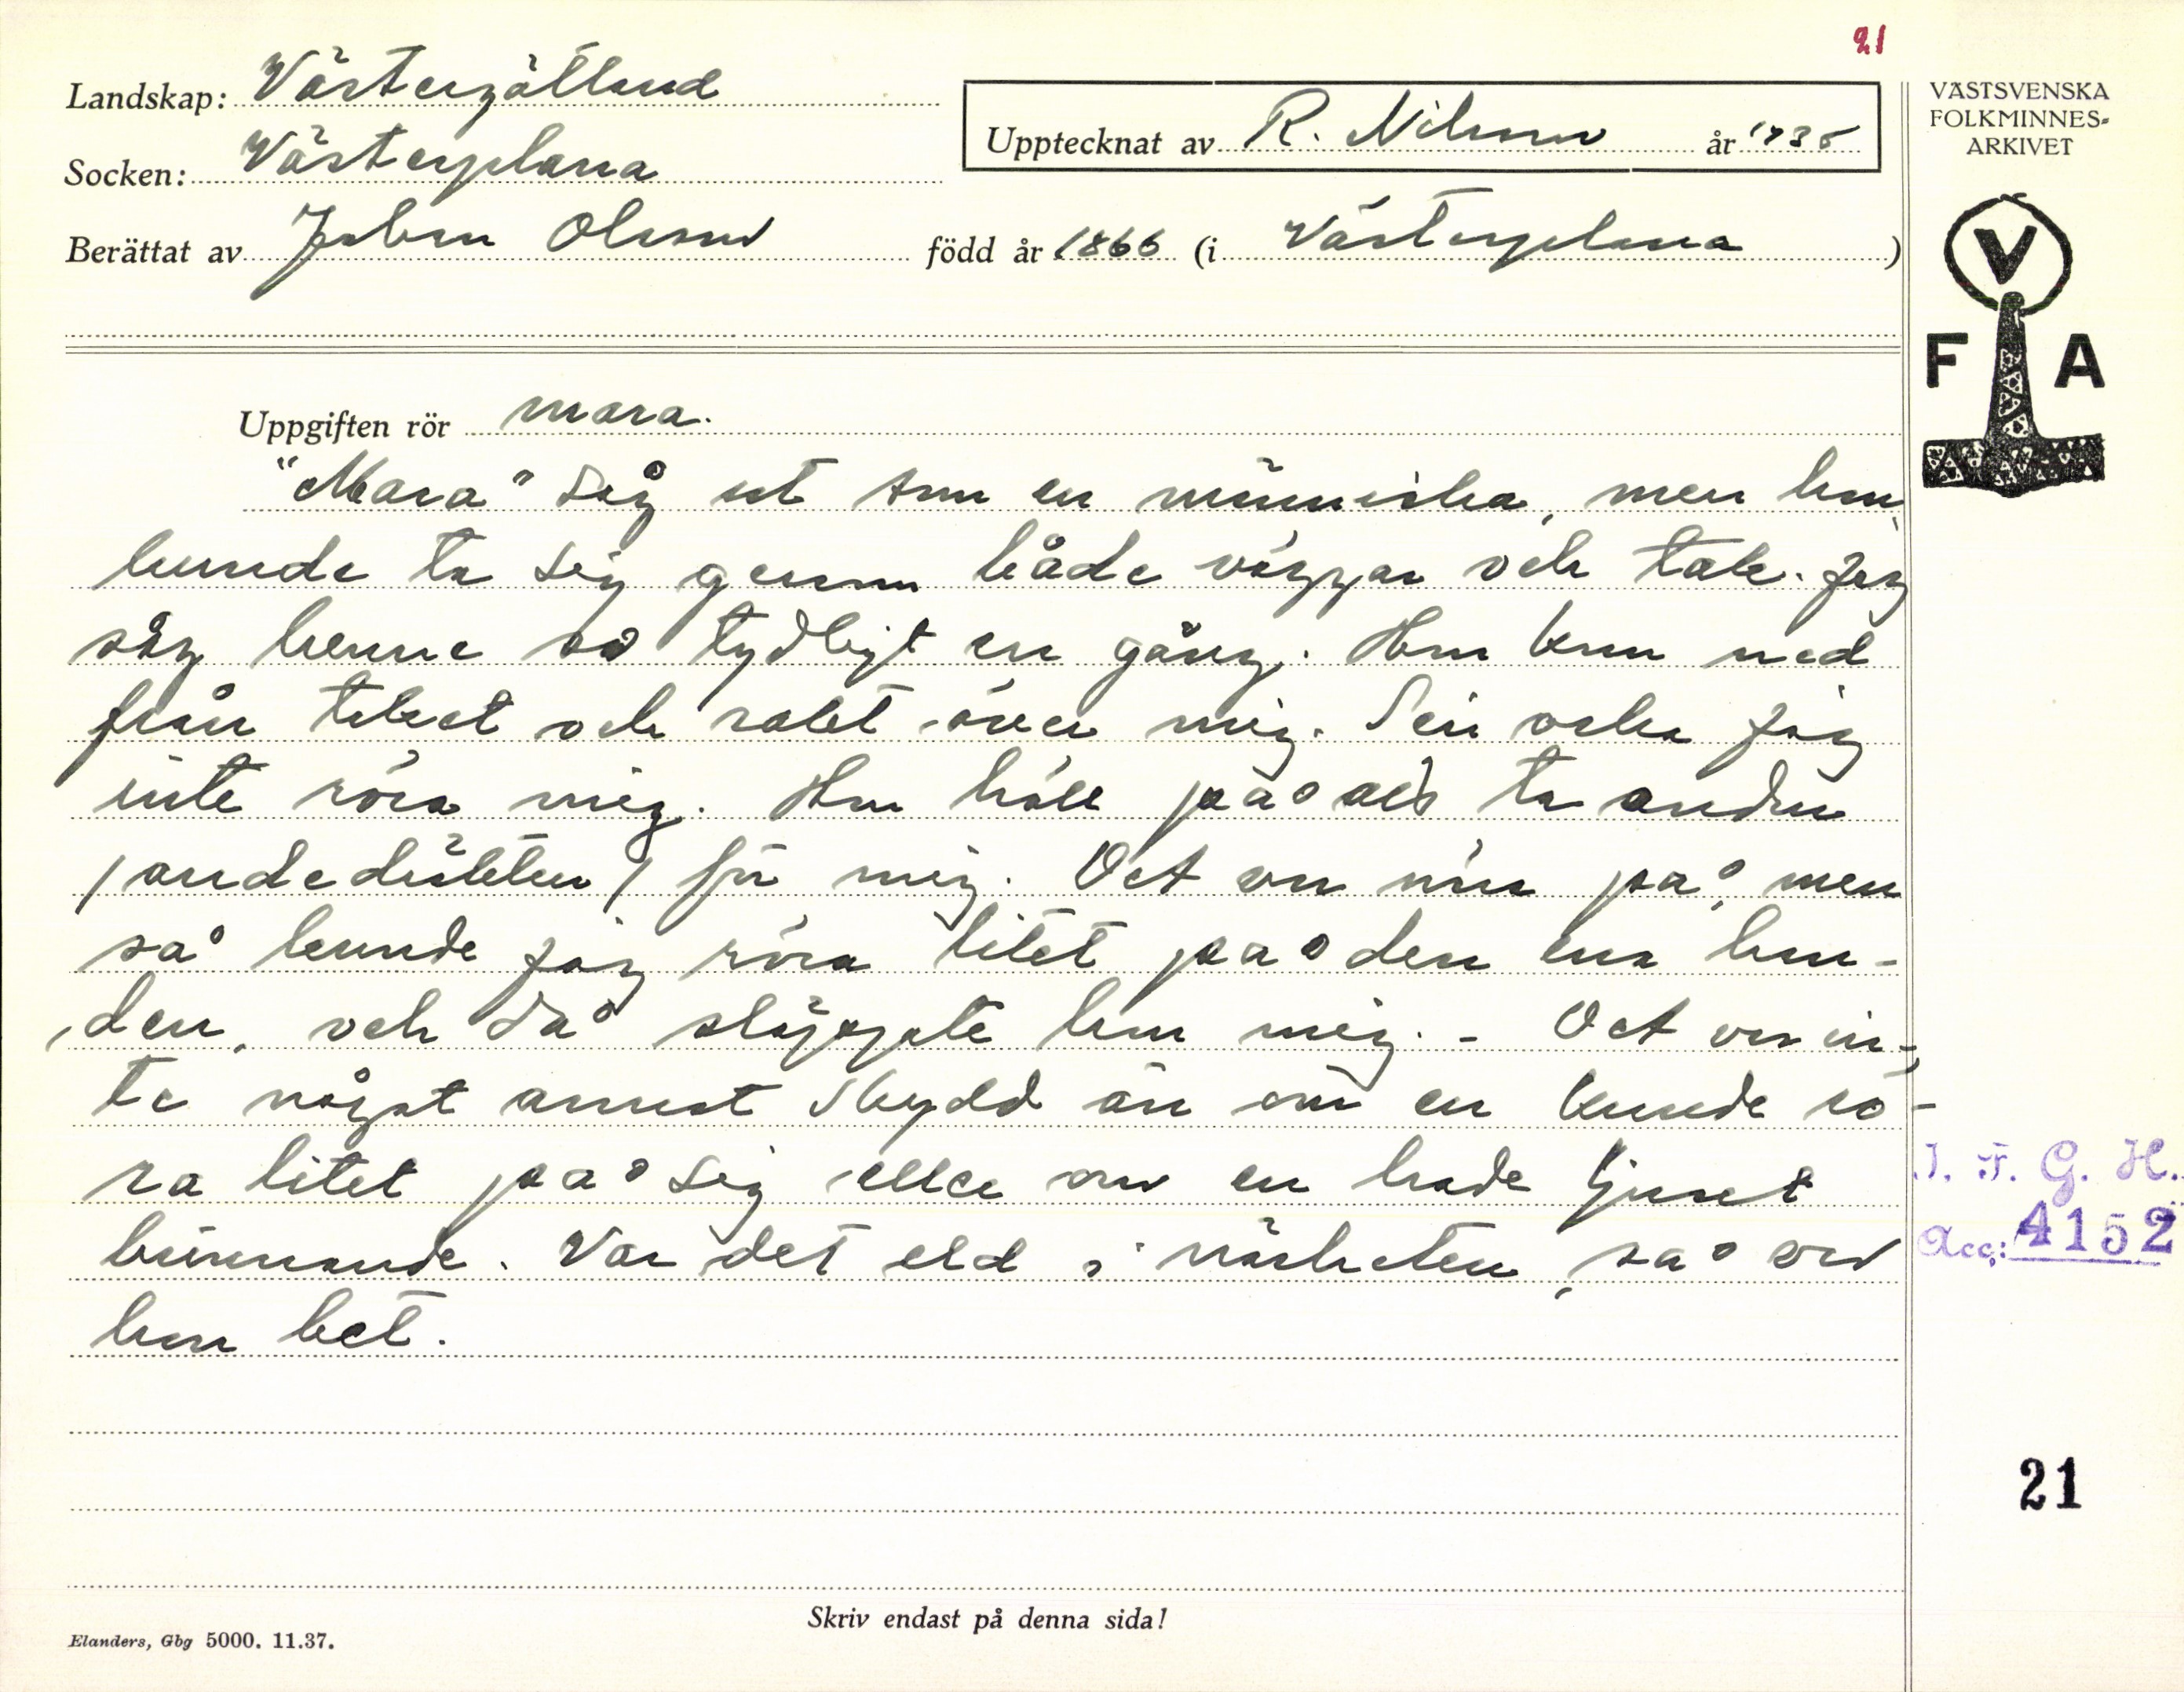 21
Landskap: Västergötland
Socken: Västerplana
Upptecknat av R. Nilsson år 1935
Berättat av Johan Olsson född år 1866 (i Västerplana)
VÄSTSVENSKA
FOLKMINNES-
ARKIVET
V
F A
Uppgiften rör mara.
"Mara" såg ut som en människa, men hon
kunde ta sig genom både väggar och tak. Jag
såg henne så tydligt en gång. Hon kom ned
från taket och satt över mig. Sen orka jag
inte röra mig. Hon höll på att ta anden
/andedräkten/ för mig. Det var nära på, men
så kunde jag röra litet på den ena han-
den, och då släppte hon mig. - Det var in-
te något annat skydd än om en kunde rö-
ra litet på sig eller om en hade ljuset
brinnande. Var det eld i närheten, så var
hon bet.
I. F. G. H.
Acc: 4152
21
Skriv endast på denna sida!
Elanders, Gbg 5000. 11.37.